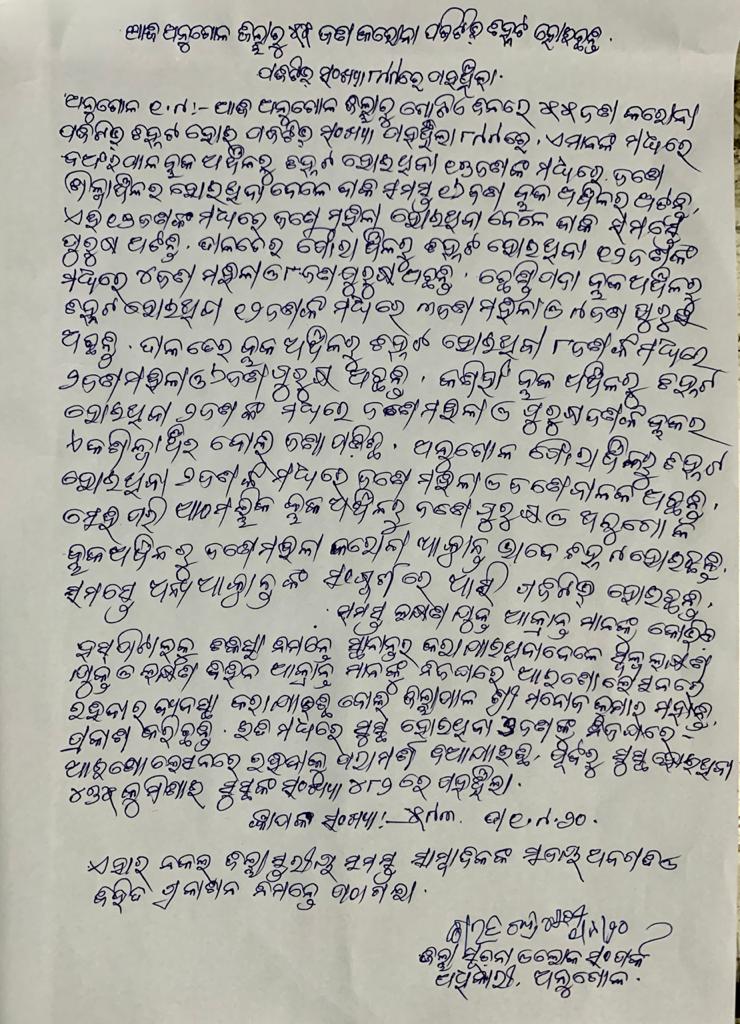 ଆଜି ଅନୁଗୋଳ ଜିଲ୍ଲାରୁ ୫୫ ଜଣ କରୋନା ପଜିଟିଭ୍ ଚିହ୍ନଟ ହୋଇଛନ୍ତି.
ପଜିଟିଭ୍ ସଂଖ୍ୟା ୮୩୩ରେ ପହଞ୍ଚିଲା.
ଅନୁଗୋଳ ୧.୯:- ଆଜି ଅନୁଗୋଳ ଜିଲ୍ଲାରୁ ଗୋଟିଏ ଦିନରେ ୫୫ ଜଣ କରୋନା
ପଜିଟିଭ୍ ଚିହ୍ନଟ ହୋଇ ପଜିଟିଭ୍ ସଂଖ୍ୟା ପହଞ୍ଚିଲା ୮୩୩ରେ. ଏମାନଙ୍କ ମଧ୍ୟରେ
ବଅଁରପାଳ ବ୍ଲକ ଅଞ୍ଚଳରୁ ଚିହ୍ନଟ ହୋଇଥିବା ୧୭ଜଣଙ୍କ ମଧ୍ୟରେ ଜଣେ
ଶିଳ୍ପାଞ୍ଚଳର ହୋଇଥିବା ବେଳେ ବାକି ସମସ୍ତ ୧୬ ଜଣ ବ୍ଲକ ଅଞ୍ଚଳର ଅଟନ୍ତି.
ଏହି ୧୭ଜଣଙ୍କ ମଧ୍ୟରେ ଜଣେ ମହିଳା ହୋଇଥିବା ବେଳେ ବାକି ସମସ୍ତେ
ପୁରୁଷ ଅଟନ୍ତି. ତାଳଚେର ପୌରାଞ୍ଚଳରୁ ଚିହ୍ନଟ ହୋଇଥିବା ୧୨ଜଣଙ୍କ
ମଧ୍ୟରେ ୪ଜଣ ମହିଳା ଓ ୮ଜଣ ପୁରୁଷ ଅଛନ୍ତି. ଛେଣ୍ଡିପଦା ବ୍ଲକ ଅଞ୍ଚଳରୁ
ଚିହ୍ନଟ ହୋଇଥିବା ୧୨ଜଣଙ୍କ ମଧ୍ୟରେ ୩ଜଣ ମହିଳା ଓ ୯ଜଣ ପୁରୁଷ
ଅଛନ୍ତି. ତାଳଚେର ବ୍ଲକ ଅଞ୍ଚଳରୁ ଚିହ୍ନଟ ହୋଇଥିବା ୮ଜଣଙ୍କ ମଧ୍ୟରେ
୨ଜଣ ମହିଳା ଓ ୬ଜଣ ପୁରୁଷ ଅଛନ୍ତି. କଣିହାଁ ବ୍ଲକ ଅଞ୍ଚଳରୁ ଚିହ୍ନଟ
ହୋଇଥିବା ୨ଜଣଙ୍କ ମଧ୍ୟରେ ଜଣେ ମହିଳା ଓ ପୁରୁଷ ଜଣକ ବ୍ଲକର
ବୋଲି ଜଣା ପଡ଼ିଛି. ଅନୁଗୋଳ ପୌରାଞ୍ଚଳରୁ ଚିହ୍ନଟ
ହୋଇଥିବା ୨ଜଣଙ୍କ ମଧ୍ୟରେ ଜଣେ ମହିଳା ଓ ଜଣେ ବାଳକ ଅଛନ୍ତି.
ସେହିପରି ଆଠମଲ୍ଲିକ ବ୍ଲକ ଅଞ୍ଚଳରୁ ଜଣେ ପୁରୁଷ ଓ ଅନୁଗୋଳ
ବ୍ଲକ ଅଞ୍ଚଳରୁ ଜଣେ ମହିଳା କରୋନା ଆକ୍ରାନ୍ତ ଭାବେ ଚିହ୍ନଟ ହୋଇଛନ୍ତି.
ସମସ୍ତେ ଅନ୍ୟ ଆକ୍ରାନ୍ତଙ୍କ ସଂସ୍ପର୍ଶରେ ଆସି ପଜିଟିଭ୍ ହୋଇଛନ୍ତି.
ସମସ୍ତ ଲକ୍ଷଣଯୁକ୍ତ ଆକ୍ରାନ୍ତ ମାନଙ୍କୁ କୋଭିଡ଼
ହସ୍ପିଟାଲକୁ ଚିକିତ୍ସା ନିମନ୍ତେ ସ୍ଥାନାନ୍ତର କରାଯାଇଥିବାବେଳେ ସ୍ୱଳ୍ପ ଲକ୍ଷଣ
ଯୁକ୍ତ ଓ ଲକ୍ଷଣ ବିହୀନ ଆକ୍ରାନ୍ତ ମାନଙ୍କୁ ନିଜଘରେ ଆଇଶୋଲେସନରେ
ରହିବାର ବ୍ୟବସ୍ଥା କରାଯାଇଛି ବୋଲି ଜିଲ୍ଲାପାଳ ଶ୍ରୀ ମନୋଜ କୁମାର ମହାନ୍ତି
ପ୍ରକାଶ କରିଛନ୍ତି. ଇତି ମଧ୍ୟରେ ସୁସ୍ଥ ହୋଇଥିବା ୭ଜଣଙ୍କୁ ନିଜଘରେ
ଆଇଶୋଲେସନରେ ରହିବାକୁ ପରାମର୍ଶ ଦିଆଯାଇଛି. ପୂର୍ବରୁ ସୁସ୍ଥ ହୋଇଥିବା
୪୭୫କୁ ମିଶାଇ ସୁସ୍ଥଙ୍କ ସଂଖ୍ୟା ୪୮୨ ରେ ପହଞ୍ଚିଲା.
ଜ୍ଞାପନ ସଂଖ୍ୟା:- ୫୮୩. ତା ୧.୯.୨୦.
ଏହାର ନକଲ ଜିଲ୍ଲାସ୍ତରୀୟ ସମସ୍ତ ସାମ୍ବାଦିକଙ୍କ ସଦୟ ଅବଗତି ଓ
ବହୁଳ ପ୍ରକାଶନ ନିମନ୍ତେ ପଠାଗଲା.
ଜିଲ୍ଲା ସୂଚନା ଓ ଲୋକ ସଂପର୍କ
ଅଧିକାରୀ, ଅନୁଗୋଳ.